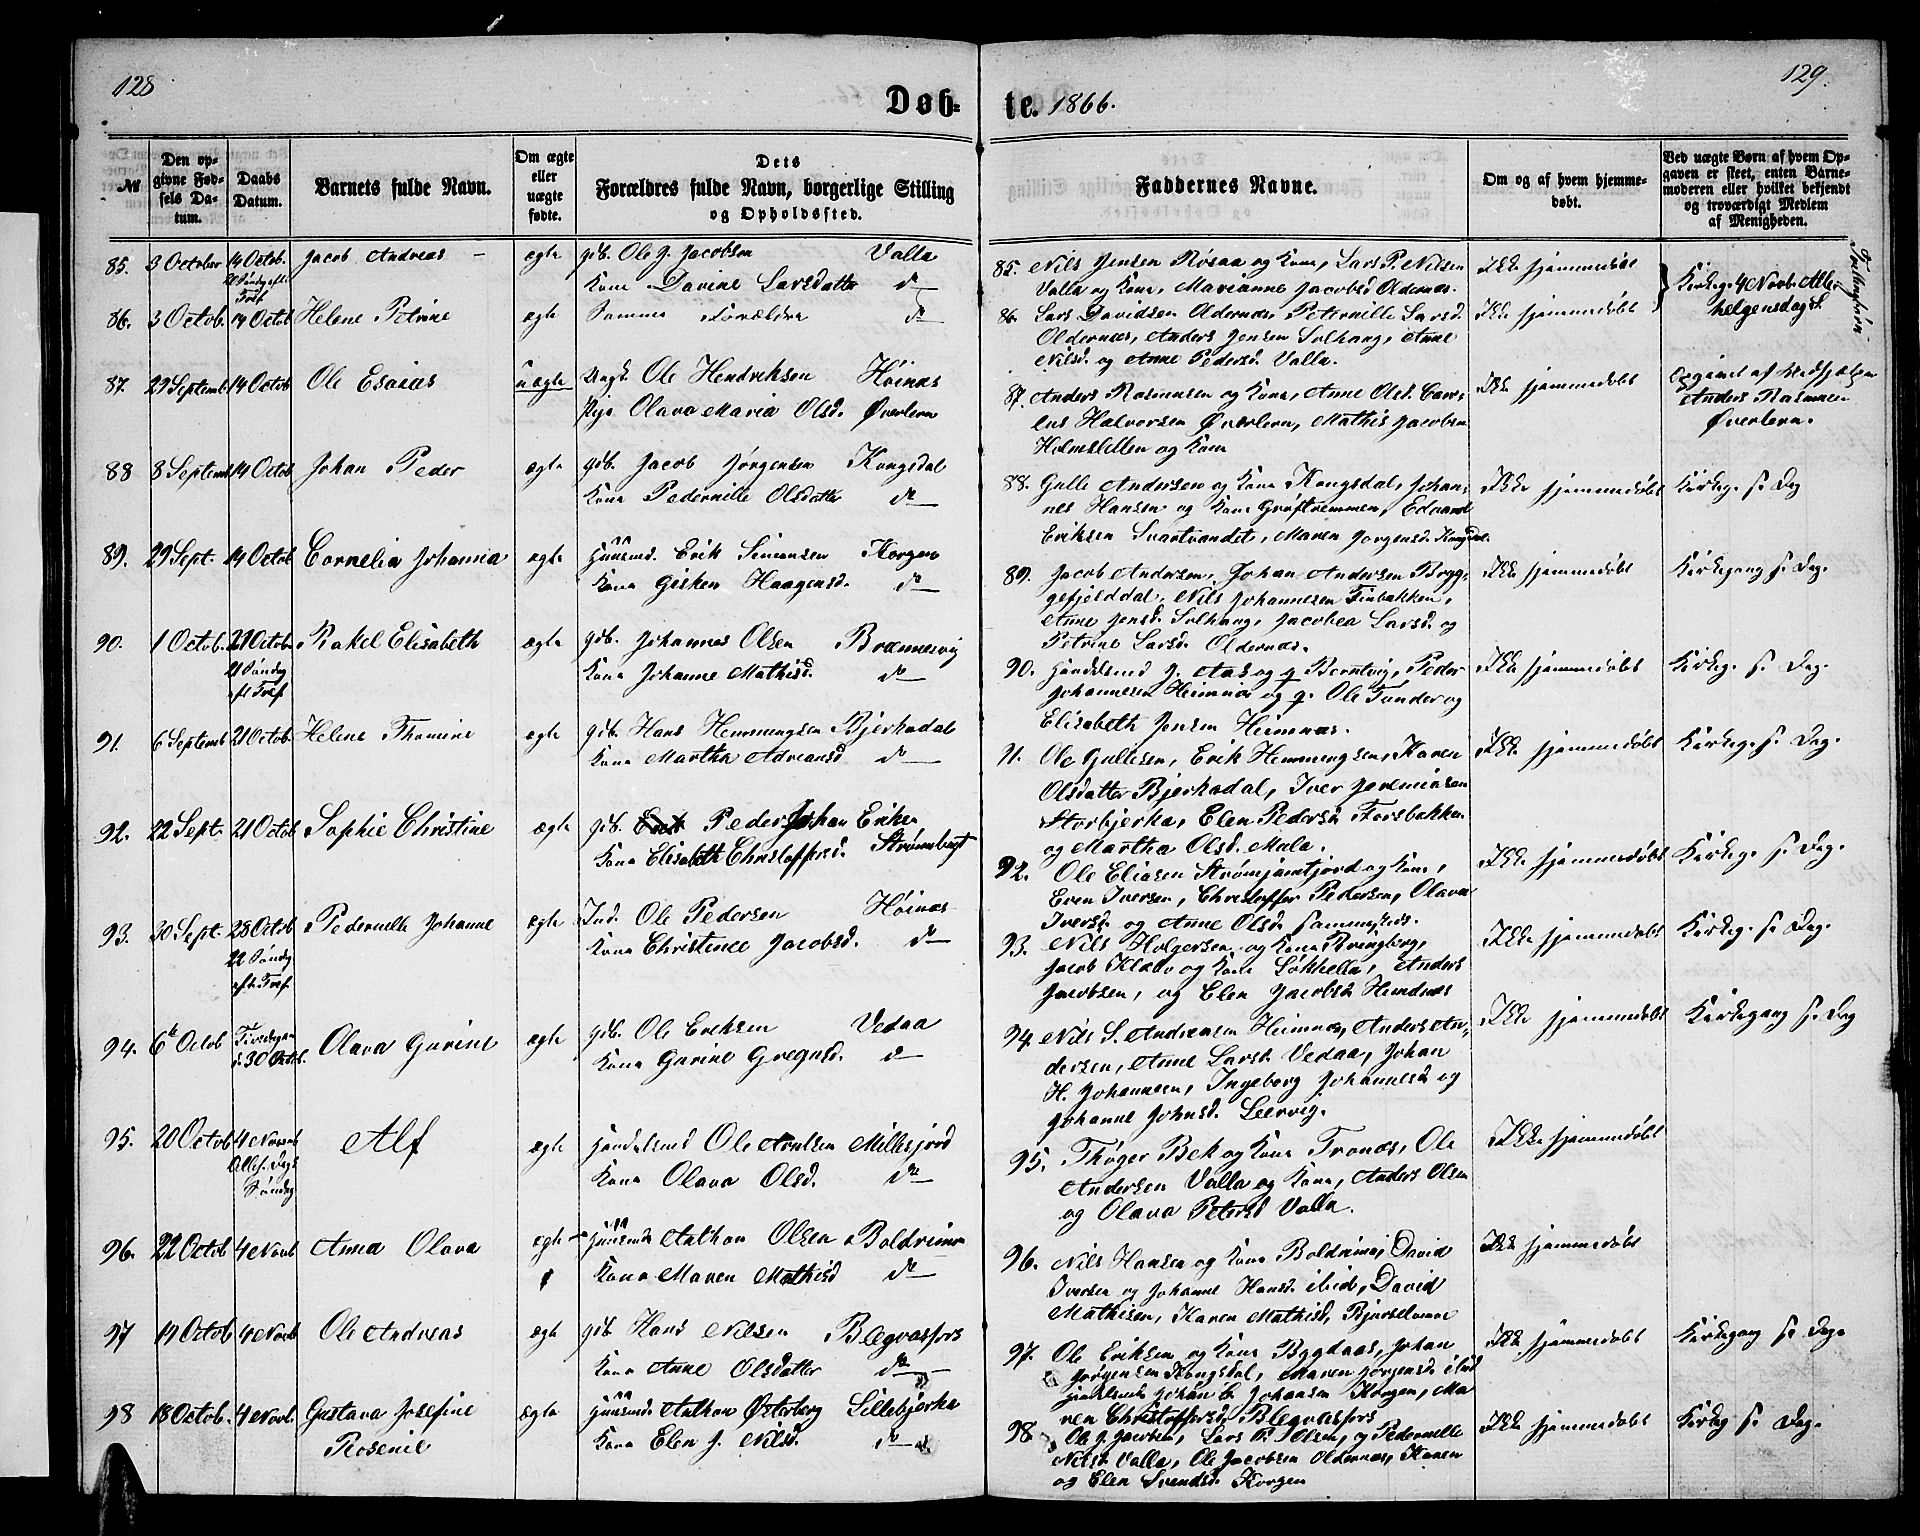 128
Døb-
№
Den op-
givne Fød-
sels Da-
tum.
Daabs
Datum.
Barnets fulde Navn.
Om ægte
eller
uægte
fødte.
Dets
Forældres fulde Navn, borgerlige Stilling
og Opholdssted.
85. 3 October 14 Octob. Jacob Andreas - ægte gib. Ole J. Jacobsen Valla
Kone Davine Larsdatter do
86. 3 Octob. 14 Octob Helene Petrine ægte Samme Forældre do
87. 29 Septemb 14 Octob Ole Esaias uægte Ungk. Ole Hendriksen Høinæs
Pige Olava Maria Olsd. Øverleren
88 8 Septemb 14 Octob Johan Peder ægte gib. Jacob Jørgensen Kongsdal
Kone Pedernille Olsdatter do
89. 29 Sept. 14 Octob Cornelia Johanna ægte Huusmd. Erik Simonsen Korgen
Kone Gisken Haagensd. do
90. 1 Octob. 21 Octob. Rakel Elisabeth ægte gib. Johannes Olsen Brennesvig
21 Søndag
eft Tref
Kone Johanne Mathisd. do
91. 6 Septemb 21 Octob. Helene Thomine ægte gib. Hans Hemmingsen Bjerkadal
Kone Martha Adreansd do
92. 22 Sept. 21 Octob Sophie Christine ægte gib. Peder Johan Eriksen
Kone Elisabeth Christoffersd. Strømsbugt
93. 30 Sept. 28 Octob Pedernille Johanne ægte Ind. Ole Pedersen Høinæs
22 Søndag
eft. Tref.
Kone Christine Jacobsd. do
94. 6te Octob Tirsdagen
d. 30 Octob. Olava Gurine ægte gib. Ole Eriksen Vedaa
Kone Gurine Gregusd. do
95. 20 Octob 4 Novemb Alf ægte Handelsmd Ole Antlsen Millesjord
Alleh. Dags
Søndag
Kone Olava Olsd. do
96. 22 Octob 4 Novb Anna Olava ægte Huusmd Anthon Olsen Boldreimo
Kone Maren Mathisd do
97 19 Octob 4 Novb Ole Andreas ægte gib Hans Nilsen Blegvasfors
Kone Anne Olsdatter do
98 18 Octob. 4 Novb. Gustava Josefine ægte Huusmd Anthon Østerberg Lillebjerka
Rosenie Kone Elen J. Nilsd. do
129.
te. 1866.
Faddernes Navne.
Om og af hvem hjemme-
døbt.
Ved uægte Børn af hvem Op-
gaven er skeet, enten Barne-
moderen eller hvilket bekjendt
og troværdigt Medlem
af Menigheden.
85. Nils Jensen Røsaa og Kone, Lars P. Nilsen Ikke hjemmedøbt Kirkeg. 4 Novb. Alle-
Valla og Kone, Marianne Jacobsd Oldernæs. helgensdag S. Tvillingbørn
86. Lars Davidsen Oldernæs, Peternille Larsd. Ikke hjemmedøbt
Oldernæs, Anders Jensen Solhaug, Anne
Nilsd. og Anne Pedersd. Valla.
87. Anders Rasmusen og Kone, Anne Olsd. Cor- Ikke hjemmedøbt Opgivet af Medhjelper
lius Halvorsen Øverleren, Mathis Jacobsen Anders Rasmusen
Holmslillen og Kone Øverleren.
88. Gulle Andersen og Kone Kongsdal, Johan- Ikke hjemmedøbt Kirkeg. s. Dag
nes Hansen og Kone Grøftremmen, Edvard
Eriksen Svartvandet, Maren Jørgensd. Kongsdal.
89. Jacob Andersen, Johan Andersen Bryg- Ikke hjemmedøbt Kirkegang s. Dag.
gefjelddal, Nils Johannesen Finbakken,
Anne Jensd. Solhaug, Jacobea Larsd og
Petrine Larsd Oldernæs.
90. Handelsmd J. Aas og Berntvig, Peder Ikke hjemmedøbt Kirkeg. s. Dag.
Johannesen Heimnæs og Ole Tunder og
Elisabeth Jensen Heimnæs.
91. Ole Gullesen, Erik Hemmingsen, Karen Ikke hjemmedøbt Kirkeg. s. Dag.
Olsdatter Bjerkadal, Iver Jeremiasen
Storbjerka, Elen Pedersd Forsbakken
og Martha Olsd. Mula.
92. Ole Eliasen Strømsjamtjord og Kone, Ikke hjemmedøbt Kirkeg. s. Dag.
Even Iversen, Christoffer Pedersen, Olava
Iversd og Anne Olsd. sammesteds.
93. Nils Holgersen og Kone Bringberg, Ikke hjemmedøbt Kirkeg. s. Dag.
Jacob Klabo og Kone Løkhella, Anders
Jacobsen, og Elen Jacobsd Hundnæs
94. Nils S. Andreasen Heimnæs, Anders An- Ikke hjemmedøbt Kirkegang s. Dag
dersen, Anne Larsd. Vedaa, Johan
H. Johannesen, Ingeborg Johannesd og
Johanne Johnsd. Leervig.
95. Thøger Bek og Kone Tronæs, Ole Ikke hjemmedøbt
Andersen Valla og Kone, Anders Olsen
og Olava Petersd Valla.
96. Nils Hansen og Kone Boldreimo, David Ikke hjemmedøbt
Iversen og Johanne Hansd. ibid, David
Mathisen, Karen Mathisd,
97. Ole Eriksen og Kone Bygdaas, Johan Ikke hjemmedøbt Kirkegang s. Dag.
Jørgensen Kongsdal, Maren Jørgensd. ibid
Johan Johansen Korgen, Ma
ren Christoffersd. Blegvasfors
98 Ole J. Jacobsen, Lars P. Olsen, og Pedernille Ikke hjemmedøbt Kirkeg s. Dag.
Nilsd Valla, Ole Jacobsen Oldernæs, Karen
og Elen Svendsd. Korgen